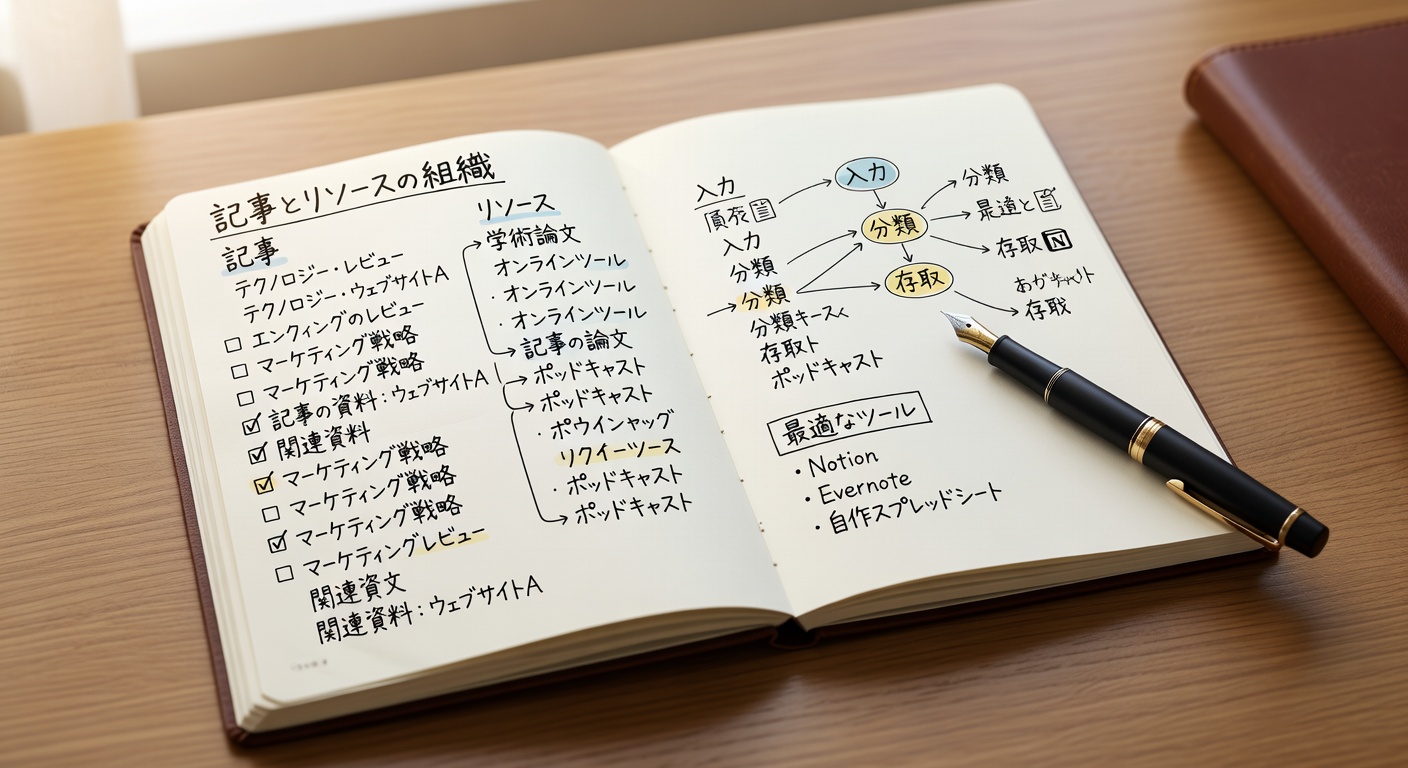 記事とリソースの組織
記事
テクノロジー・レビュー
テクノロジー・ウェブサイトA
エンクィングのレビュー
マーケティング戦略
マーケティング戦略
記事の資料:ウェブサイトA
関連資料
マーケティング戦略
マーケティング戦略
マーケティング戦略
マーケティングレビュー
関連資文
関連資料:ウェブサイトA
リソース
学術論文
オンラインツール
・オンラインツール
・オンラインツール
記事の論文
ポッドキャスト
ポッドキャスト
・ポウインャッグ
リクイーツース
・ポッドキャスト
ポッドキャスト
入力
入力
分類
分類
分類キース
存取ト
ポッドキャスト
入力
分類
存取
分類
最適と
存取 N
存取
最適なツール
・Notion
・Evernote
・自作スプレッドシート